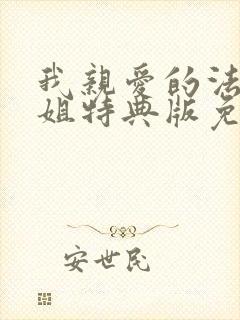 我親愛的法
姐特典版免
安世民